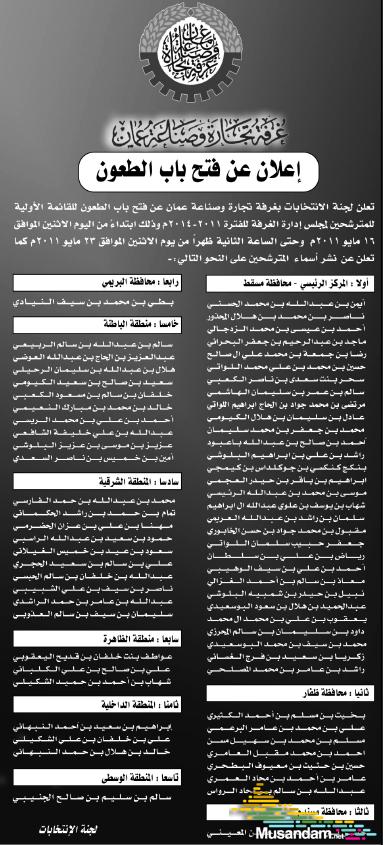 غرفة تجارة وصناعة عمان
إعلان عن فتح باب الطعون
تعلن لجنة الانتخابات بغرفة تجارة وصناعة عمان عن فتح باب الطعون للقائمة الأولية
للمترشحين لمجلس إدارة الغرفة للفترة ٢٠١١-٢٠١٤م وذلك ابتداء من اليوم الاثنين الموافق
١٦ مايو ٢٠١١م وحتى الساعة الثانية ظهراً من يوم الاثنين الموافق ٢٣ مايو ٢٠١١م كما
تعلن عن نشر أسماء المترشحين على النحو التالي :-
أولا : المركز الرئيسي - محافظة مسقط
أيمن بن عبدالله بن محمد الحسني
ناصر بن محمد بن هلال المحذور
أحمد بن عيسى بن محمد الزدجالي
ماجد بن عبدالرحيم بن جعفر البحراني
رضا بن جمعة بن محمد علي ال صالح
حسين بن محمد بن علي اللواتي
سحر بنت سعدي بن ناصر الكعبي
سالم بن عمر بن سليمان الهاشمي
مرتضى بن محمد جواد بن الحاج ابراهيم اللواتي
عادل بن سليمان بن هلال الكيومي
محمد بن جعفر بن محمد سليمان
أحمد بن صالح بن عبدالله باعبود
راشد بن علي بن ابراهيم البلوشي
بنكج كنكسي بن جوكلداس بن كيمجي
ابراهيم بن باقر بن حيدر العجمي
موسى بن محمد بن عبدالله الرئيسي
شهاب بن يوسف بن علوي عبدالله ال ابراهيم
سلمان بن راشد بن عبدالله العريمي
مقبول بن محمد جواد بن حسن الخابوري
جعفر حبيب سلمان اللواتي
رياض بن علي بن سلطان
أحمد بن علي بن سيف الوهيبي
معاذ بن سالم بن أحمد الغزالي
نبيل بن حيدر بن شمبيه البلوشي
عبدالحميد بن هلال بن سعود البوسعيدي
يعقوب بن علي بن محمد ال محمد
داود بن سليمان بن سالم المحرزي
محمد بن سيف بن محمد البوسعيدي
زكريا بن سعيد بن فرج الغساني
راشد بن عامر بن محمد المصلحي
ثانيا : محافظة ظفار
بخيت بن مسلم بن أحمد الكثيري
علي بن محمد بن عامر البرعمي
مسلم بن محمد بن سهيل مسن
أحمد بن محمد مقبل العامري
حسين بن حثيث بن معيوف البطحري
عامر بن أحمد بن محاد العمري
عبدالله بن سالم بن محاد الرواس
ثالثا : محافظة مسندم
رابعا : محافظة البريمي
بطي بن محمد بن سيف النيادي
خامسا : منطقة الباطنة
سالم بن عبدالله بن سالم الربيعي
عبدالعزيز بن الحاج بن عبدالله العوضي
هلال بن عبدالله بن سليمان الرحيلي
سعيد بن صالح بن سعيد الكيومي
خلفان بن سالم بن سعود الكعبي
خالد بن محمد بن مبارك النعيمي
أحمد بن علي بن محمد الريسي
عبدالله بن علي خليفة الشافعي
عزيز بن موسى بن عزيز البلوشي
أمين بن خميس بن ناصر السعدي
سادسا : المنطقة الشرقية
محمد بن عبدالله بن حمد الفارسي
تمام بن حمد بن راشد الحكماني
مهنا بن علي بن عزان الحضرمي
حمود بن سعيد بن عبدالله الراسبي
سعود بن عبيد بن خميس الغيلاني
علي بن سالم بن سعيد الحجري
عبدالله بن خلفان بن سالم الحبسي
ناصر بن سيف بن علي الشبيبي
عبدالله بن عامر بن حمد الراشدي
سليمان بن سيف بن سالم العذوبي
سابعا : منطقة الظاهرة
عواطف بنت خلفان بن قديح اليعقوبي
علي بن صالح بن علي الكلباني
شهاب بن أحمد بن حميد الشكيلي
ثامنا : المنطقة الداخلية
إبراهيم بن سعيد بن أحمد النبهاني
علي بن خلفان بن علي الشكيلي
خالد بن هلال بن حمد النبهاني
تاسعا : المنطقة الوسطى
سالم بن سليم بن صالح الجنيبي
لجنة الانتخابات
Musandam.net